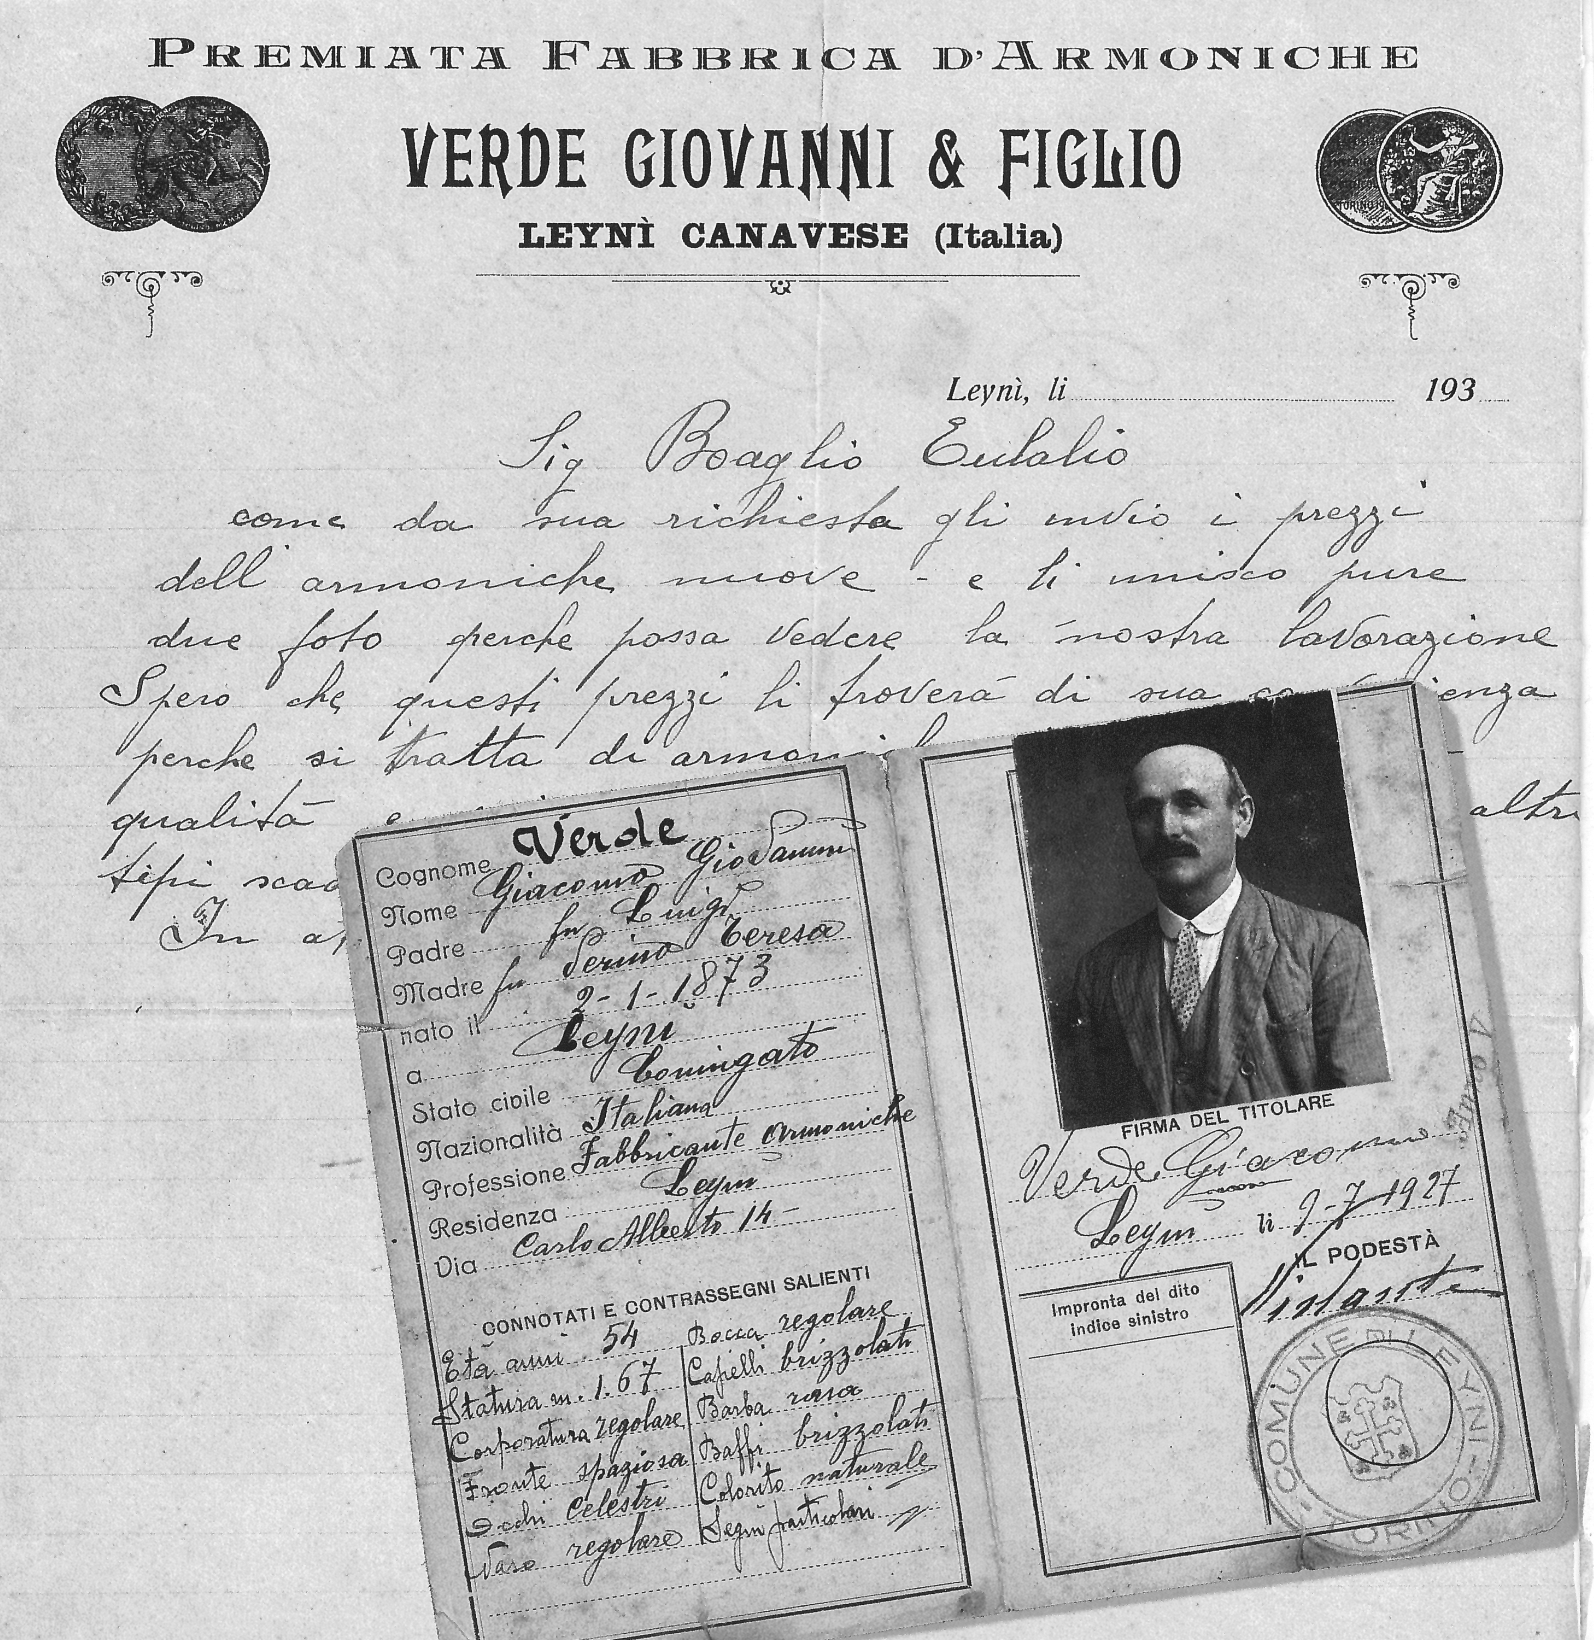 PREMIATA FABBRICA D'ARMONICHE
VERDE GIOVANNI & FIGLIO
LEYNÌ CANAVESE (Italia)
Leynì, li 193
Sig Boaglio Eulalio
come da sua richiesta gli invio i prezzi
dell armoniche nuove - e li unisco pure
due foto perche possa vedere la nostra lavorazione
Spero che questi prezzi li troverá di sua
perche si tratta di
qualitá altri
tipi
In
Cognome Verde
Nome Giacomo Giovanni
Padre fu Luigi
Madre fu Perino Teresa
nato il 2-1-1873
a Leynì
Stato civile Coniugato
Nazionalità Italiana
Professione Fabbricante armoniche
Residenza Leynì
Via Carlo Alberto 14-
CONNOTATI E CONTRASSEGNI SALIENTI
Età anni 54
Statura m. 1.67
Corporatura regolare
Fronte spaziosa
Occhi celestri
Naso regolare
Bocca regolare
Capelli brizzolati
Barba rasa
Baffi brizzolati
Colorito naturale
Segni particolari
FIRMA DEL TITOLARE
Verde Giacomo
Leynì li 9-7-1927
IL PODESTÀ
Impronta del dito
indice sinistro
COMUNE DI LEYNI - TORINO